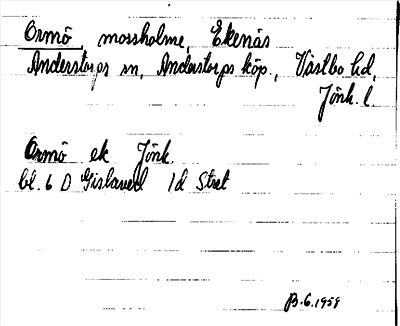 Ormö, mossholme, Ekenäs
Anderstorps sn, Anderstorps köp., Västbo hd,
Jönk. l
Ormö ek Jönk.
bl. 6 D Gislaved 1d Stret
B.G. 1959